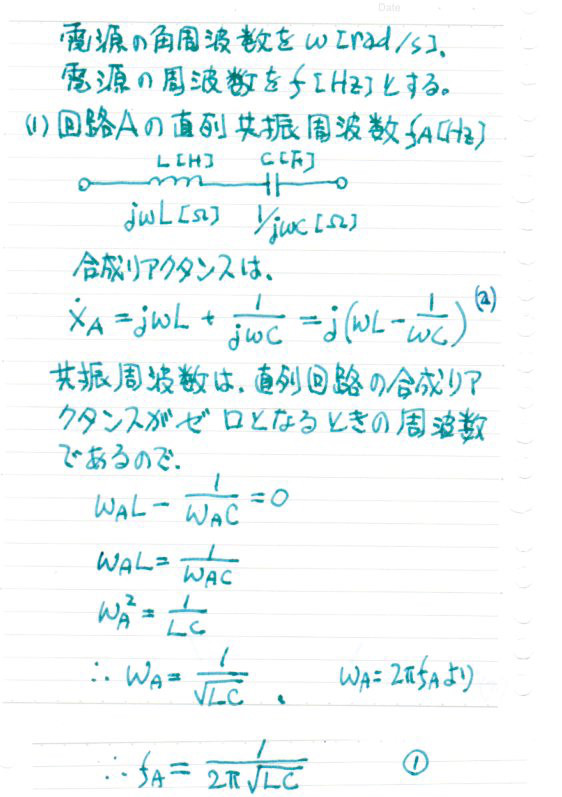 Date
電源の角周波数をω[rad/s]、
電源の周波数をf[Hz]とする。
(1) 回路Aの直列共振周波数fA[Hz]
L[H] C[F]
jωL[Ω] 1/jωC[Ω]
合成リアクタンスは、
ẊA = jωL + 1/jωC = j(ωL - 1/ωC) (a)
共振周波数は、直列回路の合成リア
クタンスがゼロとなるときの周波数
であるので、
ωAL - 1/ωAC = 0
ωAL = 1/ωAC
ωA² = 1/LC
∴ ωA = 1/√LC 、 ωA = 2πfAより
∴ fA = 1/2π√LC ①